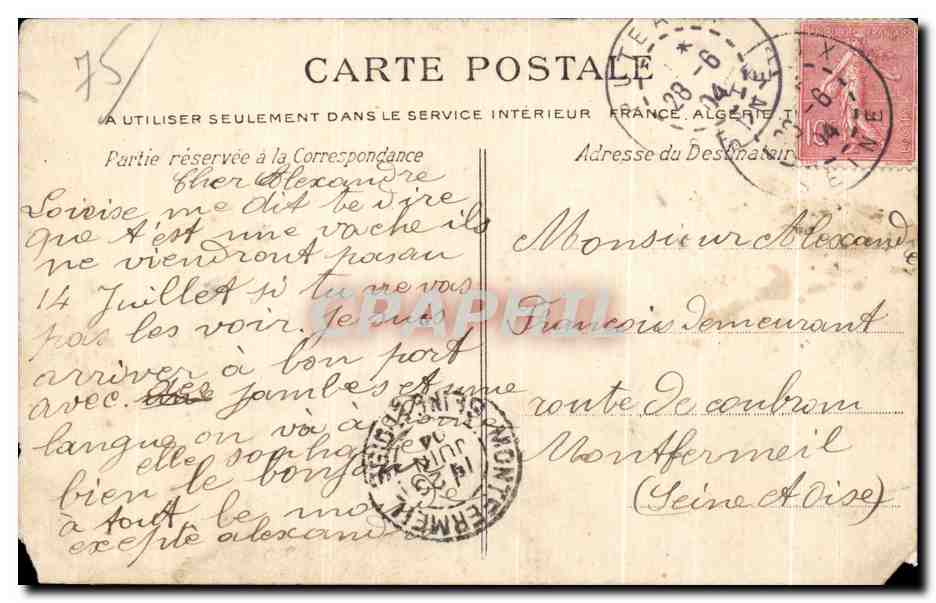 75
CARTE POSTALE
A UTILISER SEULEMENT DANS LE SERVICE INTÉRIEUR FRANCE, ALGÉRIE
Partie réservée à la Correspondance
Cher Alexandre
Loicise me dit te dire
que t'est une vache ils
ne viendront pas au
14 Juillet si tu ne vas
pas les voir. je suis
arriver à bon port
avec des jambes et une
langue on và à
elle souhaite
bien le bonjo
à tout le mo
excepté alexand
Adresse du Destinatair
Monsieur Alexandre
Francois demeurant
route de coubron
Montfermeil
(Seine et Oise)
28 -6 04
MONTFERMEIL
SEINE-ET-OISE
JUIN
04
SEINE
CPAPHIL